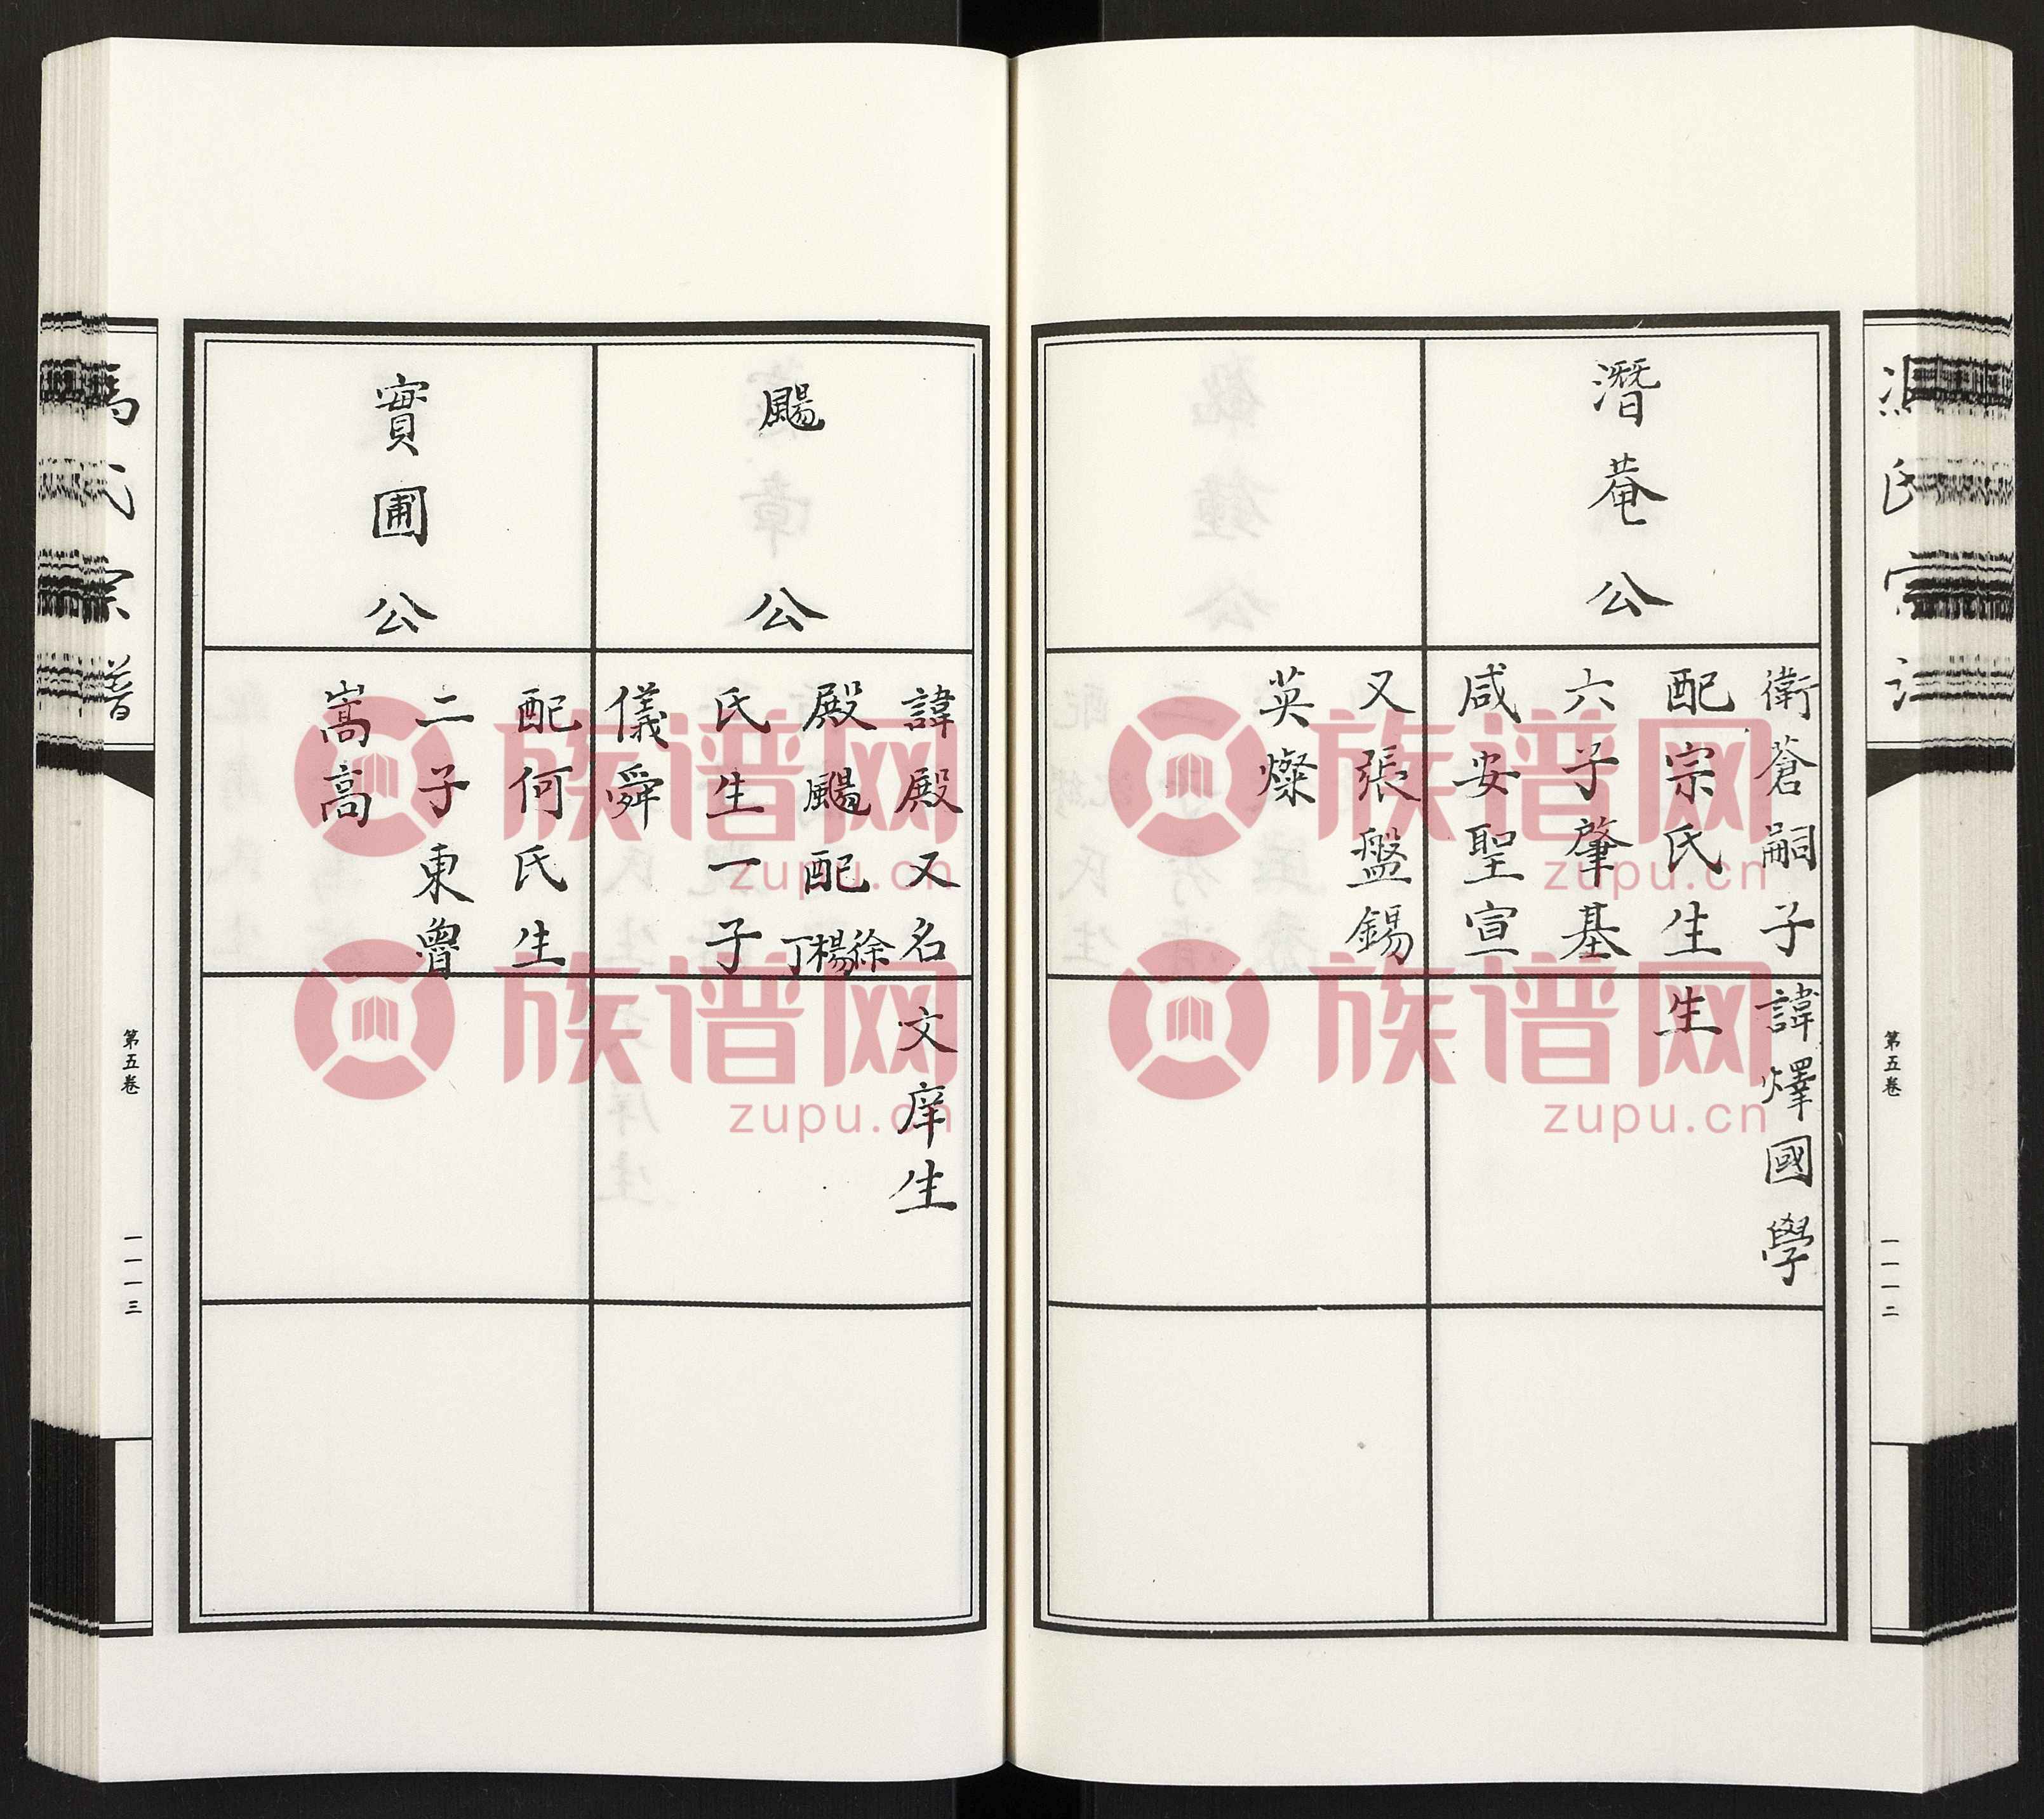 潛菴公
衛蒼嗣子諱燡國學
配宗氏生生
六子肇基
咸安聖宣
又張盤錫
英燦
第五卷
一一一二
颺公
諱殿又名文庠生
殿颺配徐楊丁
氏生一子
儀舜
實圃公
配何氏生
二子東魯
嵩高
馮氏宗譜
第五卷
一一一三
族谱网
zupu.cn
族谱网
zupu.cn
族谱网
zupu.cn
族谱网
zupu.cn